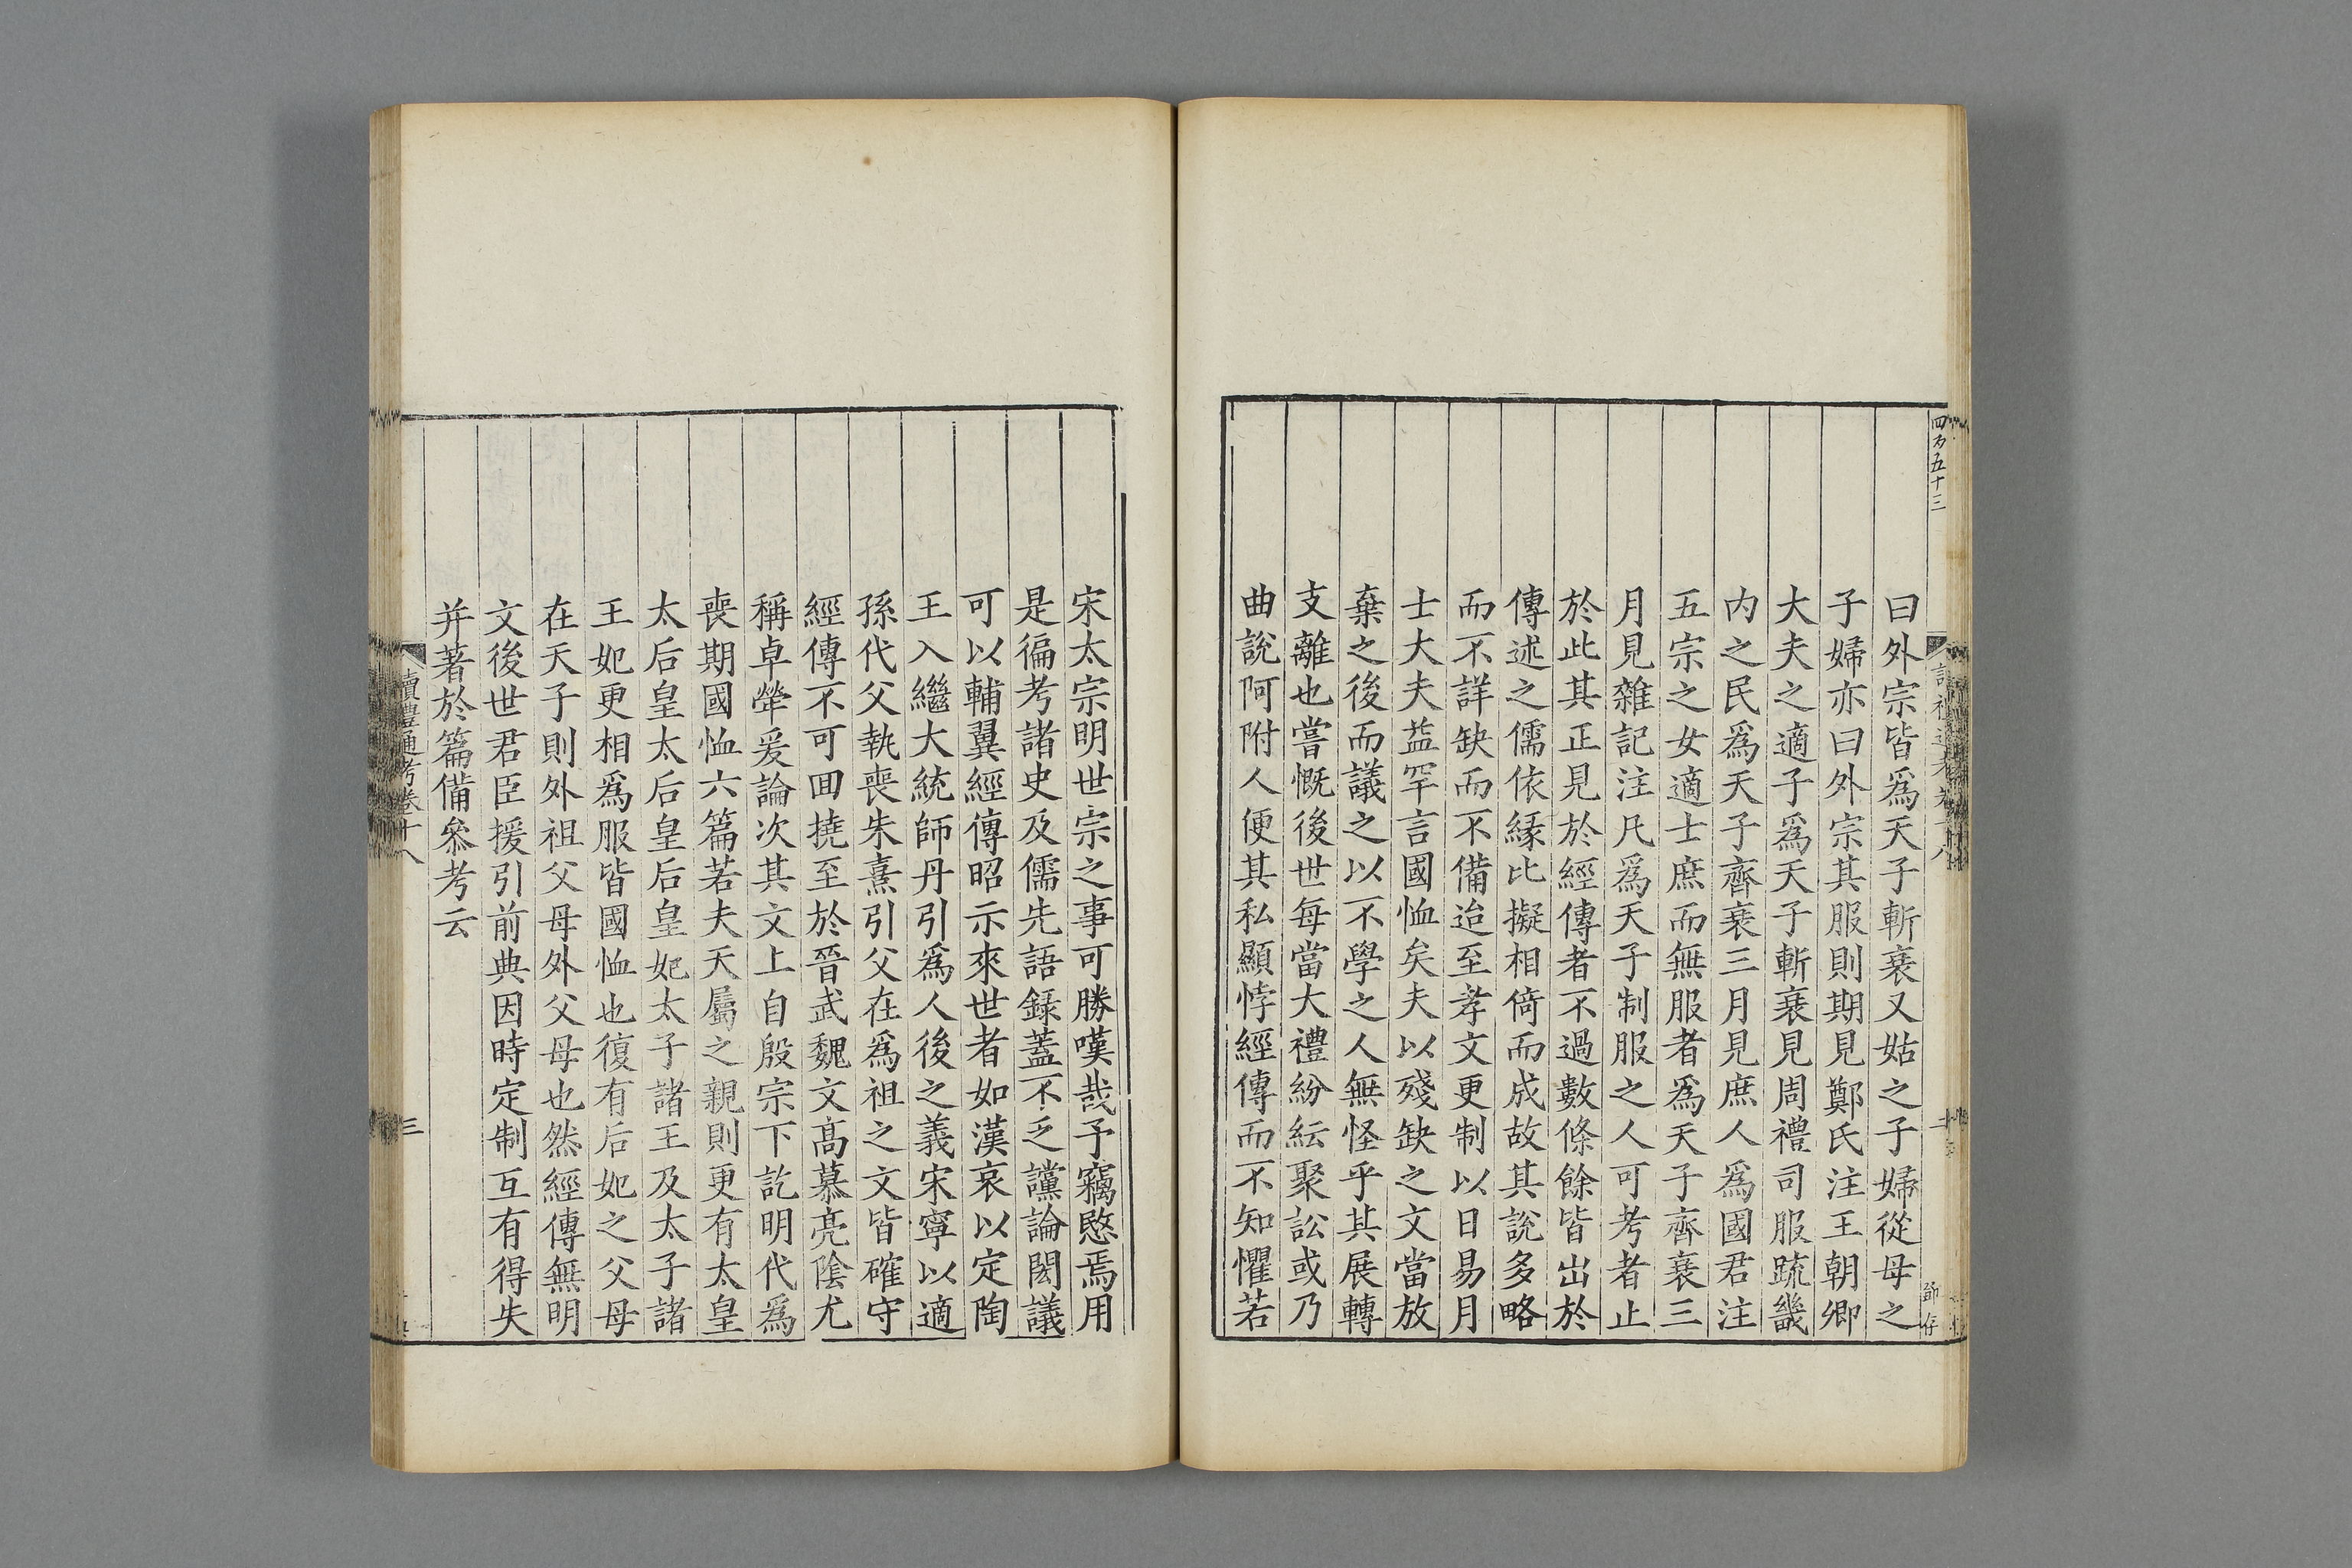 四百五十三
曰外宗皆爲天子斬衰又姑之子婦從母之
子婦亦曰外宗其服則期見鄭氏注王朝卿
大夫之適子爲天子斬衰見周禮司服疏畿
内之民爲天子齊衰三月見庶人爲國君注
五宗之女適士庶而無服者爲天子齊衰三
月見雜記注凡爲天子制服之人可考者止
於此其正見於經傳者不過數條餘皆出於
傳述之儒依緣比擬相倚而成故其說多略
而不詳缺而不備迨至孝文更制以日易月
士大夫葢罕言國恤矣夫以殘缺之文當放
棄之後而議之以不學之人無怪乎其展轉
支離也嘗慨後世每當大禮紛紜聚訟或乃
曲說阿附人便其私顯悖經傳而不知懼若
宋太宗明世宗之事可勝嘆哉予竊愍焉用
是徧考諸史及儒先語録蓋不乏讜論閎議
可以輔翼經傳昭示來世者如漢哀以定陶
王入繼大統師丹引爲人後之義宋寧以適
孫代父執喪朱熹引父在爲祖之文皆確守
經傳不可回撓至於晉武魏文髙慕亮陰尤
稱卓犖爰論次其文上自殷宗下訖明代爲
喪期國恤六篇若夫天屬之親則更有太皇
太后皇太后皇后皇妃太子諸王及太子諸
王妃更相爲服皆國恤也復有后妃之父母
在天子則外祖父母外父母也然經傳無明
文後世君臣援引前典因時定制互有得失
并著於篇備叅考云
讀禮通考卷十八
三